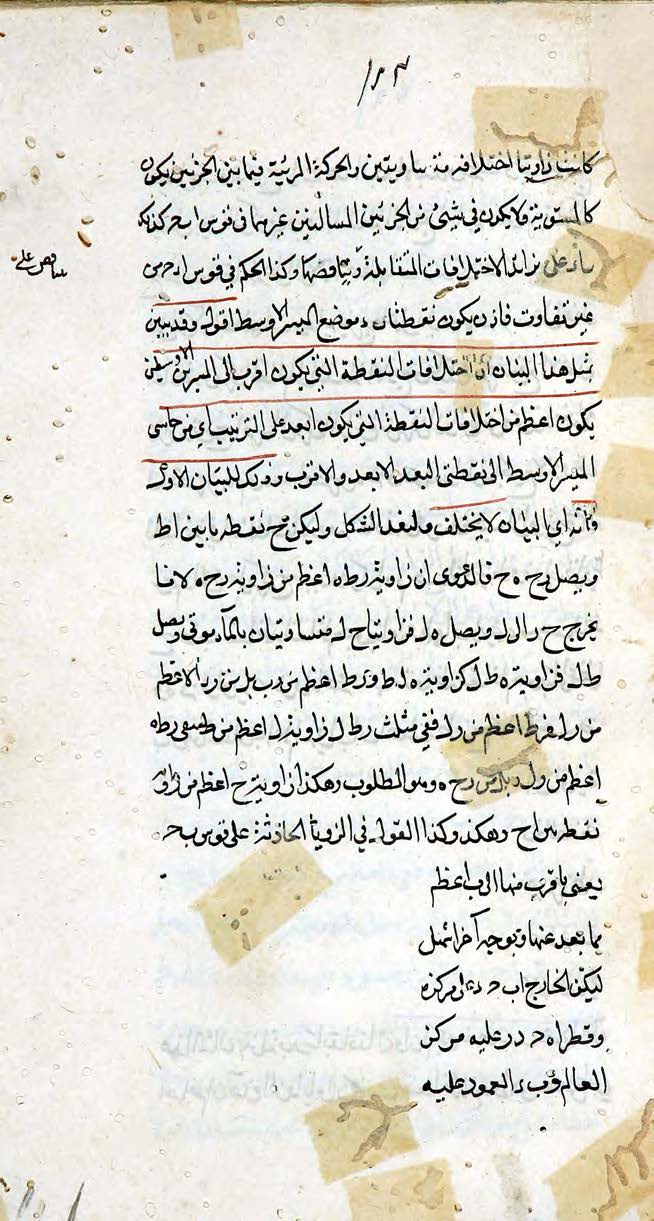 ١٨٣
كانت زاويتا اختلافه متساويتين والحركة المرئية فيما بين الجزئين يكون
كالمستوية ولا يكون في شيئ من الجزئين المسالبين غيرهما في قوس ا ب ح كذلك
على تزائد الاختلافات المتقابلة وتناقصها وكذا الحكم في قوس ا د ح من
غير تفاوت فاذن يكون نقطتا ب د موضع المسير الاوسط اقول وقد يبين
بمثل هذا البيان ان اختلافات النقطة التي يكون اقرب الى المسير الاوسطين
يكون اعظم من اختلافات النقطة التي يكون ابعد على الترتيب اي من حاسى
المسير الاوسط الى نقطتى البعد الابعد والاقرب وذلك للبيان الاول
اي البيان لا يختلف ولنعد الشكل وليكن ح نقطه ما بين ا ط
ويصل ر ح ه ح فالدعوى ان زاوية ر ط ه اعظم من زاوية ر ح ه لانا
نخرج ح ر الى ل ويصل ه ل فزاويتا ح ل متساويتان بالمأموني ويصل
ط ل فزاوية ه ط ل كزاوية ه ل ط و ر ط اعظم من ر ب بل من ر د الاعظم
من ر ل فر ط اعظم من ر ل ففي مثلث ر ط ل زاوية ل اعظم من ط يبقى ر ط ه
اعظم من ر ل ه بل من ر ح ه وهو المطلوب وهكذا زاوية ح اعظم من زاوية
نقطه بين ا ح وهكذا وكذا القول في الزوايا الحادثة على قوس ب ح
يعنى ما قرب منها الى ب اعظم
مما بعد عنها وبوجه آخر اشمل
ليكن الخارج ا ب ح د على مركزه
وقطرا ه ح د ر عليه مركز
العالم و ب ء العمود عليه
على